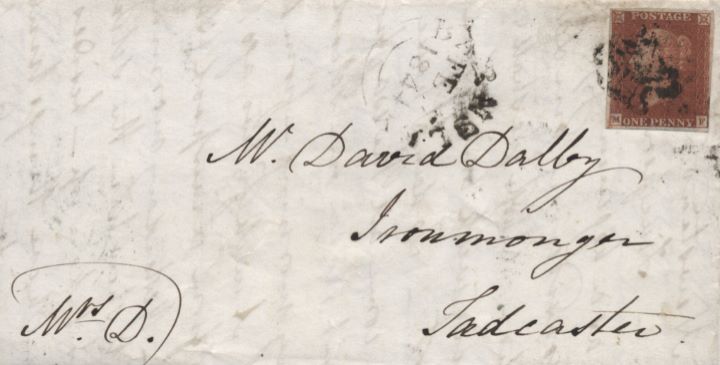 POSTAGE
ONE PENNY
Mr. David Dalby
Ironmonger
Tadcaster.
Mrs. D.